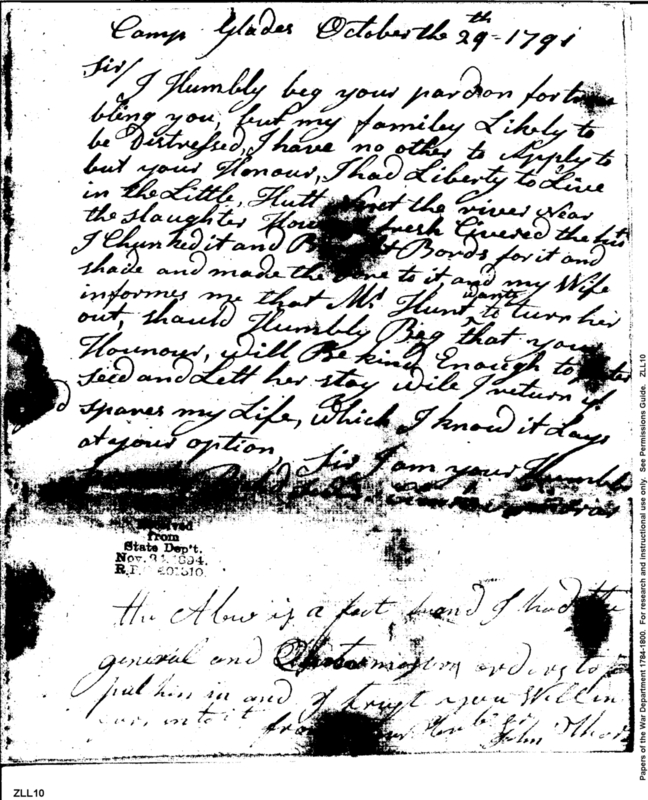 Camp Glades October the 29th - 1791
Sir/
I Humbly beg your pardon for trou
bling you, but my familey Likely to
be Distressed, I have no other to Apply to
but your Honour, I had Liberty to Live
in the Little, Hutt the river Near
the slaughter fresh Covered the
I Chunked it and Bords for it and
shade and made the to it and my Wife
informes me that Mr Hunt, wants to turn her
out, should Humbly Beg that your
Hounour, will Be kind Enough to
seed and Lett her stay wile I return if
spares my Life, which I know it Lays
at your option,
Sir I am your Humble
Received
from
State Dep't.
Nov. 1894.
R.P. 401310
The Abov is a fact, and I had the
general and orders to
put him in and I trust you Will in
John
Papers of the War Department 1784-1800. For research and instructional use only. See Permissions Guide. ZLL10
ZLL10